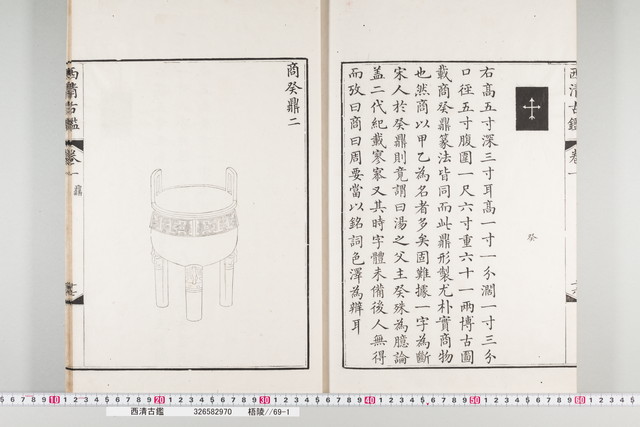 西清古鑑 卷一
癸
右高五寸深三寸耳高一寸一分濶一寸三分
口徑五寸腹圍一尺六寸重六十一兩博古圖
載商癸鼎篆法皆同而此鼎形製尤朴實商物
也然商以甲乙為名者多矣固難據一字為斷
宋人於癸鼎則竟謂曰湯之父主癸殊為臆論
蓋二代紀載寥寥又其時字體未備後人無得
而攷曰商曰周要當以銘詞色澤為辯耳
商癸鼎二
西清古鑑 卷一 鼎
10 20 30 40 50 60
西清古鑑 326582970 梧陵//69-1